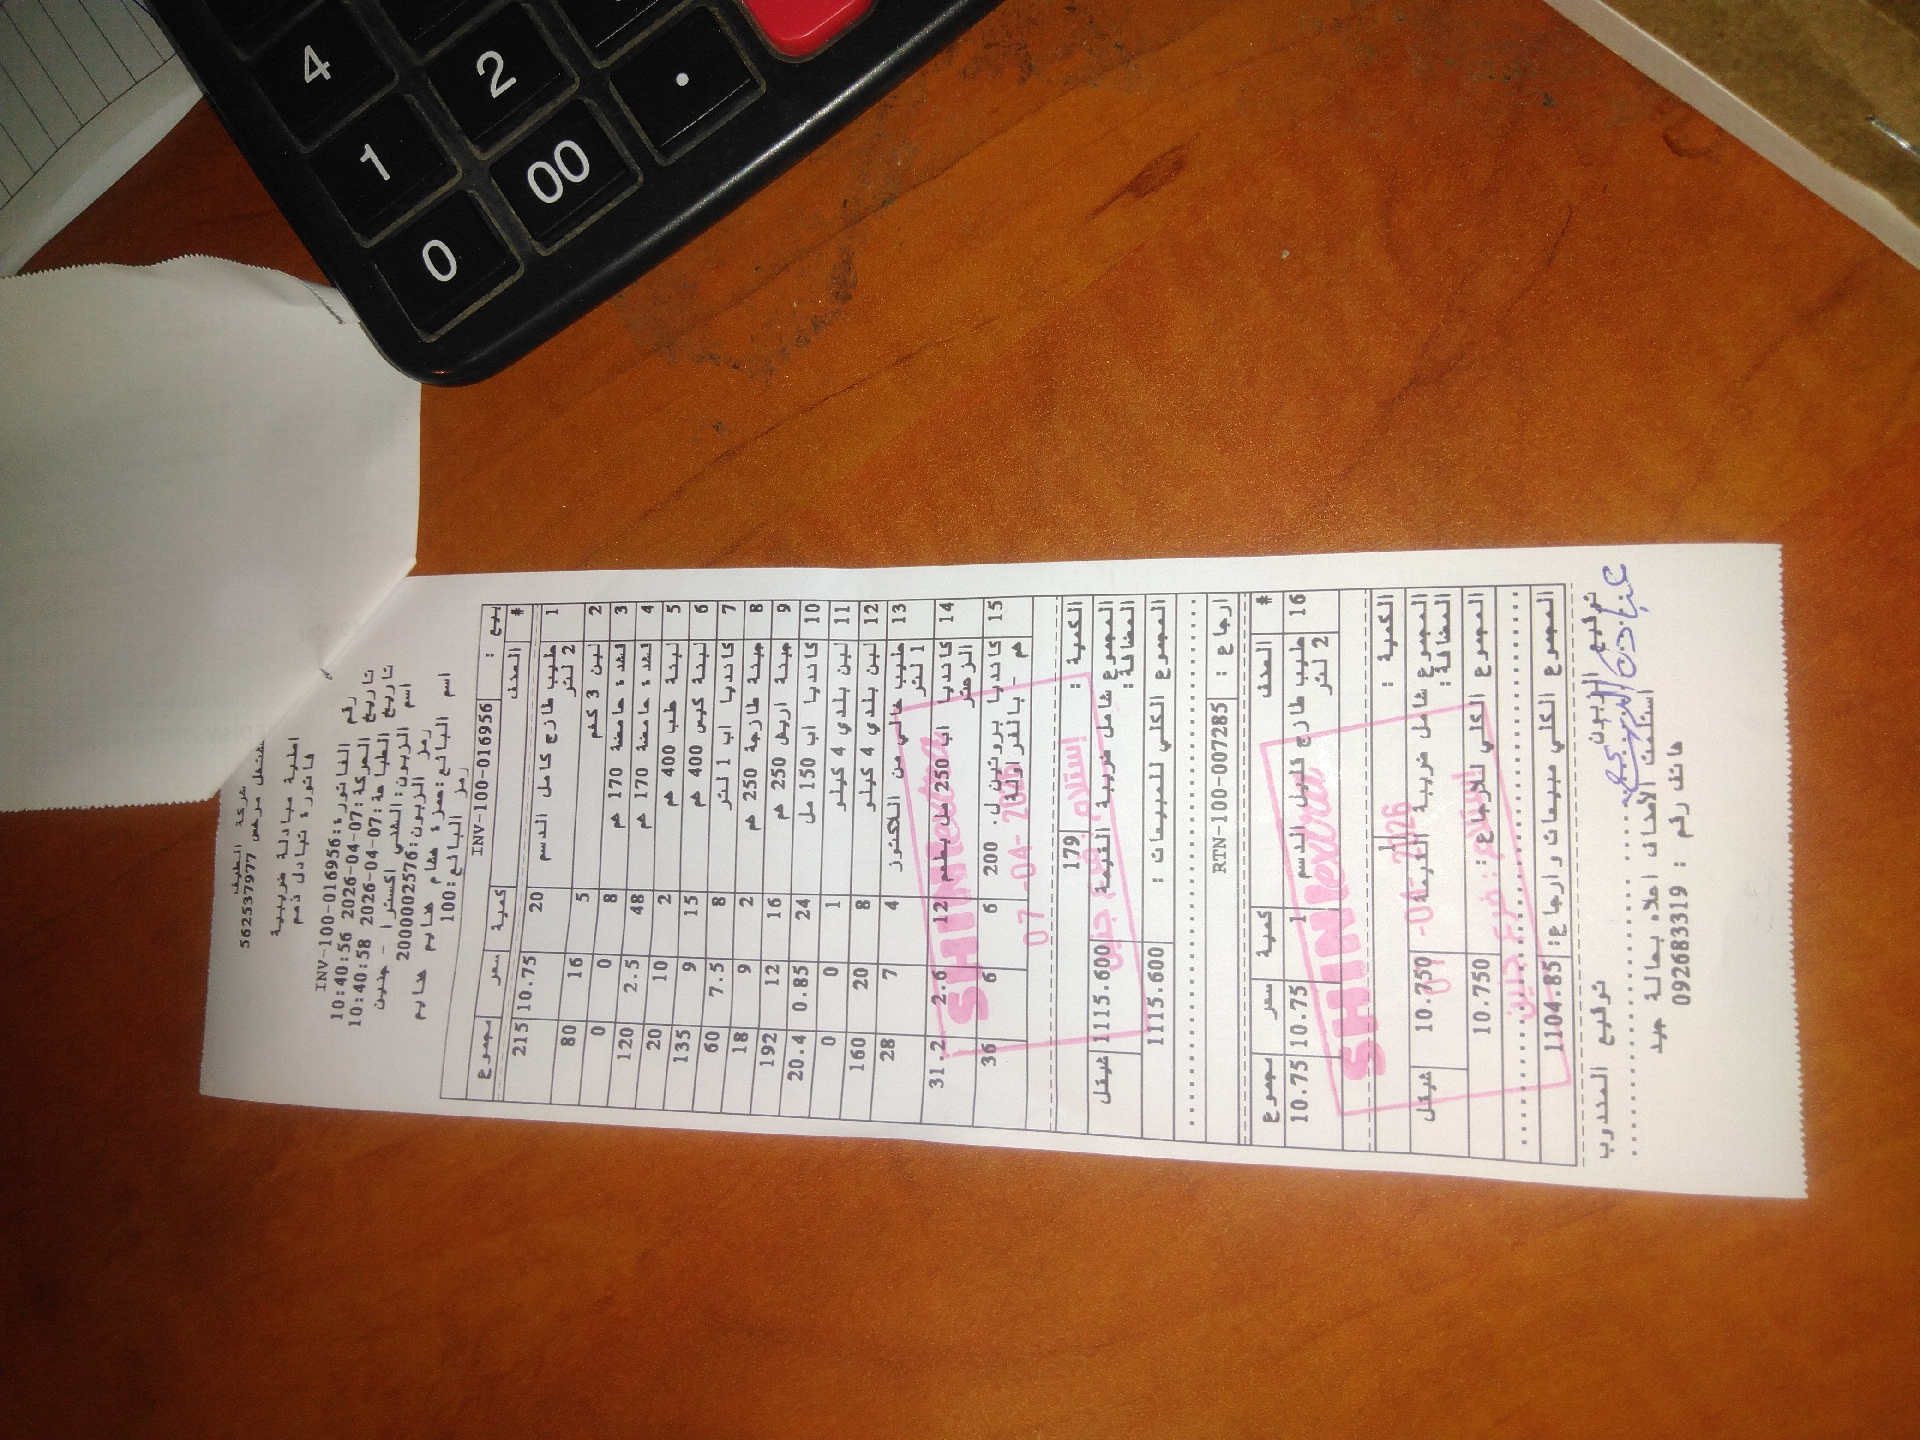 شركة الطيف
مشتغل مرخص 562537977
اصلية مبادلة ضريبية
فاتورة تبادل ذمم
رقم الفاتورة:INV-100-016956
تاريخ الحركة:07-04-2026 10:40:56
تاريخ الطباعة:07-04-2026 10:40:58
اسم الزبون: اكسترا - جنين
رمز الزبون:2000002576
اسم البائع:حمزة هشام
رمز البائع:100
بيع : INV-100-016956
# الصنف كمية سعر مجموع
1 حليب طازج كامل الدسم 2 لتر 20 10.75 215
2 لبن 3 كغم 5 16 80
3 حامضة 170 غم 8 0 0
4 حامضة 170 غم 48 2.5 120
5 لبنة علب 400 غم 2 10 20
6 لبنة كيس 400 غم 15 9 135
7 كانديا اب 1 لتر 8 7.5 60
8 جبنة طازجة 250 غم 2 9 18
9 جبنة اريش 250 غم 16 12 192
10 كانديا اب 150 مل 24 0.85 20.4
11 لبن بلدي 4 كيلو 1 0 0
12 لبن بلدي 4 كيلو 8 20 160
13 حليب خالي من اللاكتوز 1 لتر 4 7 28
14 كانديا اب 250 مل بطعم 12 2.6 31.2
15 كانديا بروتين ل. 200 غم - بالفراولة 6 6 36
SHINI extra
07 -04- 2026
إستلام فرع جنين
الكمية : 179
المجموع شامل ضريبة القيمة المضافة: 1115.600 شيقل
المجموع الكلي للمبيعات : 1115.600
ارجاع : RTN-100-007285
# الصنف كمية سعر مجموع
16 حليب طازج قليل الدسم 2 لتر 1 10.75 10.75
SHINI extra
07 -04- 2026
إستلام فرع جنين
الكمية : 1
المجموع شامل ضريبة القيمة المضافة: 10.750 شيقل
المجموع الكلي للارجاع : 10.750
المجموع الكلي مبيعات وارجاع: 1104.85
توقيع الزبون توقيع المندوب
استلمت الأصناف اعلاه بحالة جيد
هاتف رقم : 092683319
4
2
.
1
00
0